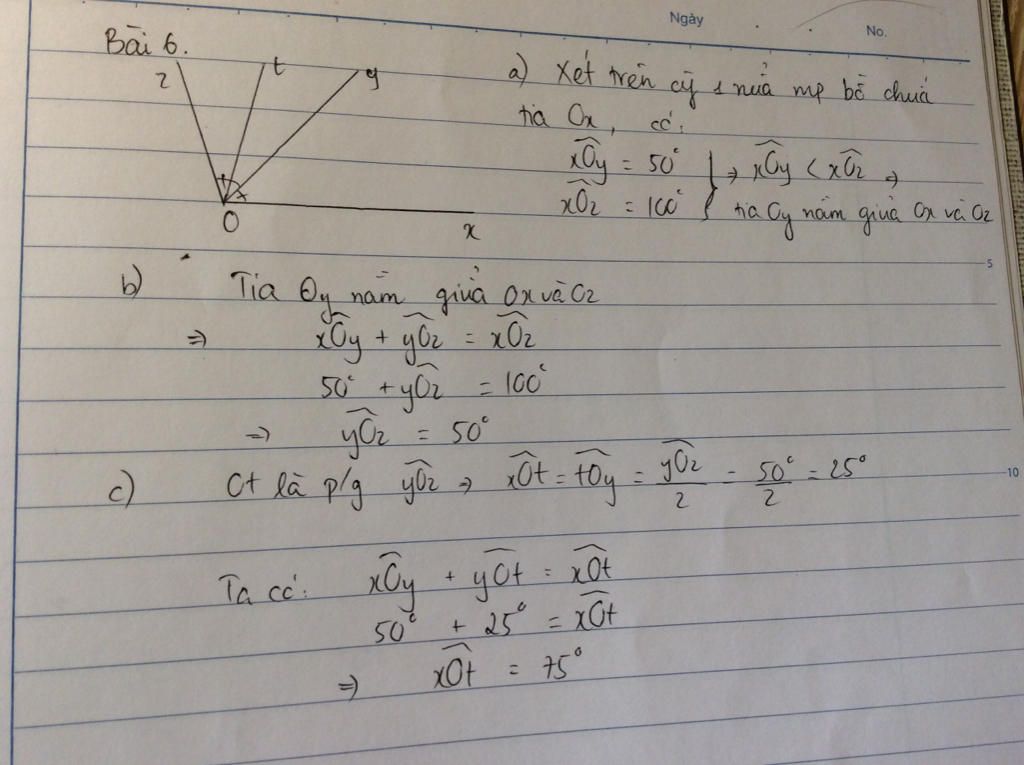 Ngày
No.
Bài 6.
z t y
O x
a) Xét trên cg 1 nửa mp bờ chứa
tia Ox, có:
xOy = 50°
xOz = 100° } ⇒ xOy < xOz ⇒
tia Oy nằm giữa Ox và Oz
5
b) Tia Oy nằm giữa Ox và Oz
⇒ xOy + yOz = xOz
50° + yOz = 100°
⇒ yOz = 50°
c) Ot là p/g yOz ⇒ xOt = tOy = yOz/2 = 50°/2 = 25°
10
Ta có: xOy + yOt = xOt
50° + 25° = xOt
⇒ xOt = 75°